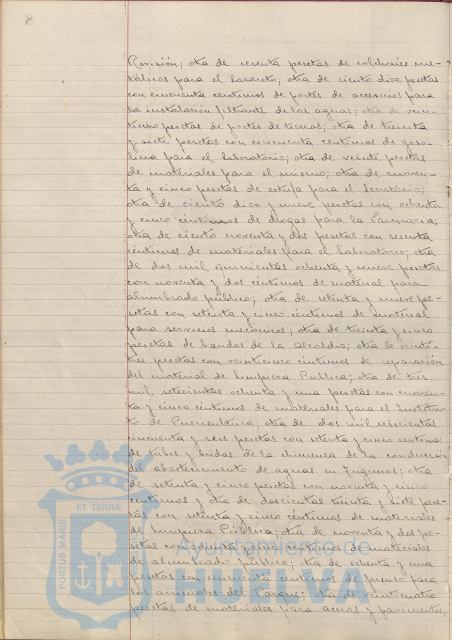 8
Revisión; otra de sesenta pesetas de colchones me-
tálicos para el Lazareto; otra de ciento doce pesetas
con cincuenta centimos de portes de accesorios para
la instalación filtrante de las aguas; otra de vein-
tiocho pesetas de portes de tierras; otra de treinta
y siete pesetas con cincuenta centimos de gaso-
lina para el laboratorio; otra de veinte pesetas
de materiales para el mismo; otra de cuaren-
ta y cinco pesetas de estufa para el Secretario;
otra de ciento diez y nueve pesetas con ochenta
y cinco centimos de drogas para la Farmacia;
otra de ciento noventa y dos pesetas con sesenta
centimos de materiales para el laboratorio; otra
de dos mil quinientas ochenta y nueve pesetas
con noventa y dos centimos de material para
alumbrado público; otra de setenta y nueve pe-
setas con setenta y cinco centimos de material
para servicios mecánicos; otra de treinta y cinco
pesetas de bandos de la Alcaldia; otra de veinti-
tres pesetas con veinticinco centimos de reparación
del material de limpieza Pública; otra de tres
mil setecientas ochenta y una pesetas con cuaren-
ta y cinco centimos de materiales para el Institu-
to de Puericultura; otra de dos mil seiscientas
cincuenta y seis pesetas con setenta y cinco centimos
de tubos y bridas de la chimenea de la conducción
del abastecimiento de aguas en; otra
de setenta y cinco pesetas con noventa y cinco
centimos y otra de doscientas treinta y siete pese-
tas con setenta y cinco centimos de materiales
de limpieza Pública; otra de noventa y dos pe-
setas con ochenta y cinco centimos de materiales
de alumbrado público; otra de ochenta y una
pesetas con cincuenta centimos de pienso para
los animales del Parque; otra de veinticuatro
pesetas de materiales para aceras y pavimentos;
PORTUS MARIS
ET TERRÆ
Ayuntamiento de
HUELVA